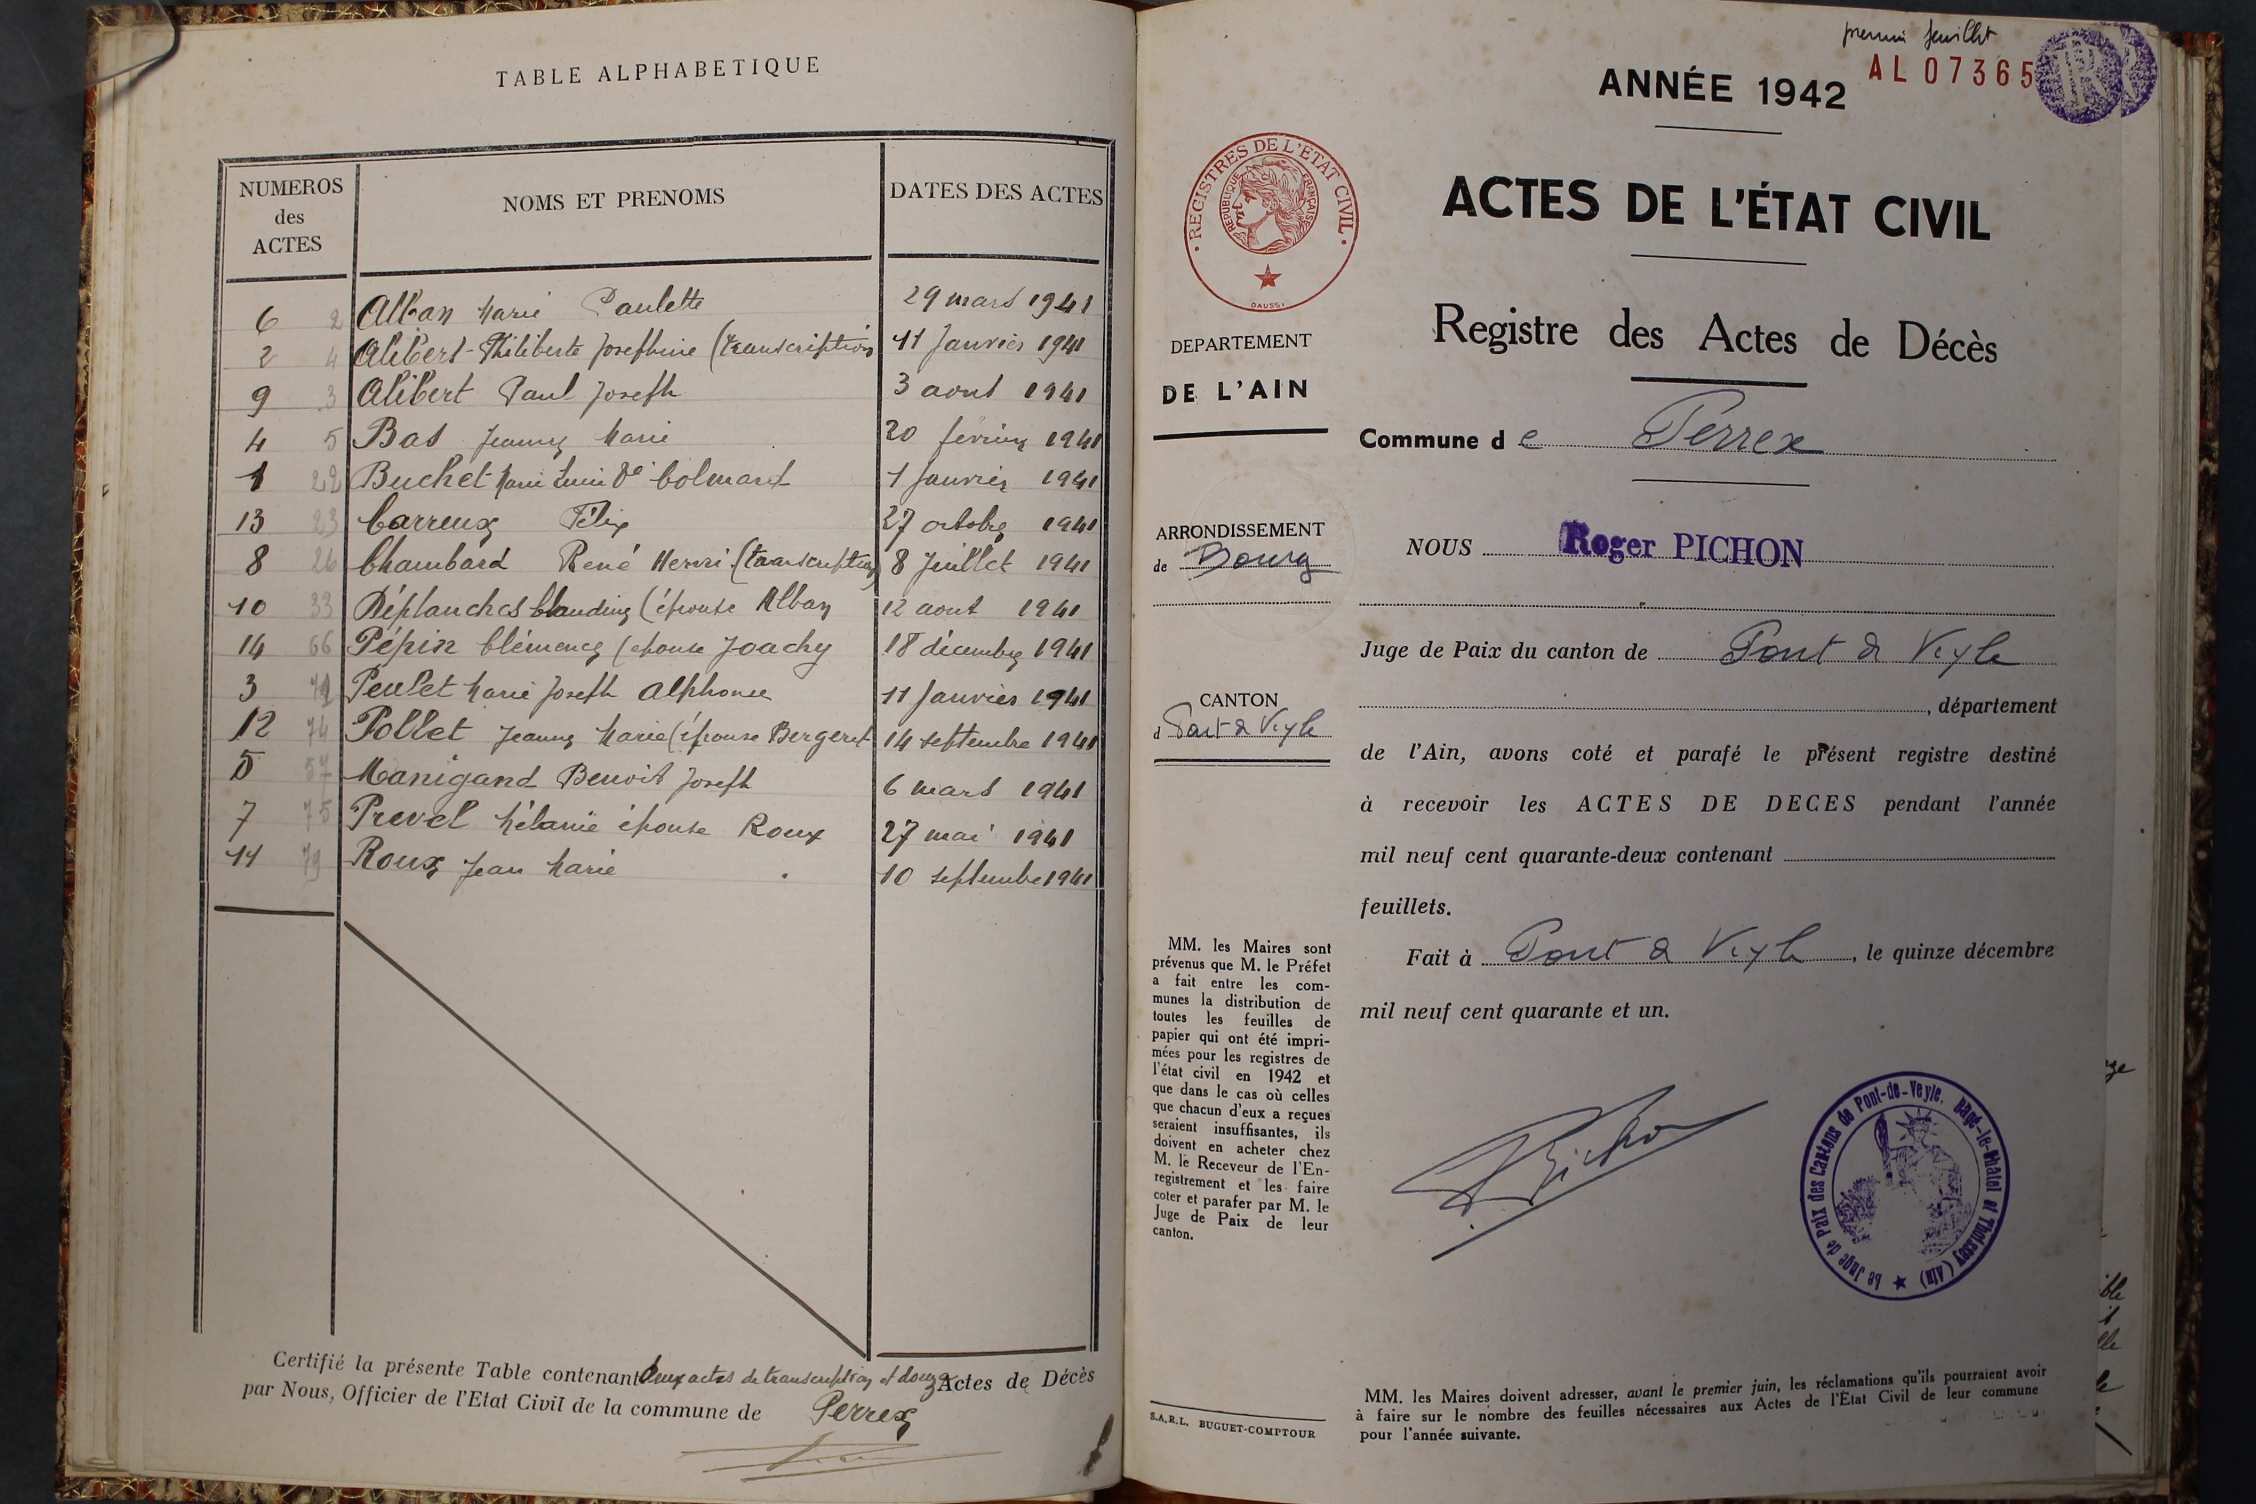 TABLE ALPHABETIQUE
NUMEROS
des
ACTES
NOMS ET PRENOMS
DATES DES ACTES
6 2 Alban Marie Paulette 29 mars 1941
2 4 Alibert-Philiberte Josephine (transcription 11 Janvier 1941
9 3 Alibert Paul Joseph 3 aout 1941
4 5 Bas Jeanne Marie 20 février 1941
1 22 Buchet Marie Vve Colmant 1 Janvier 1941
13 23 Carreux Félix 27 octobre 1941
8 26 Chambard René Henri (transcription) 8 Juillet 1941
10 33 Déplanches Claudine (épouse Alban 12 aout 1941
14 66 Pépin Clémence (epouse Joachy 18 décembre 1941
3 72 Peulet Marie Joseph Alphonse 11 Janvier 1941
12 74 Pollet Jeanne Marie (épouse Bergeret 14 septembre 1941
5 57 Manigand Benoit Joseph 6 mars 1941
7 75 Prevel Mélanie épouse Roux 27 mai 1941
11 79 Roux Jean Marie 10 septembre 1941
Certifié la présente Table contenant deux actes de transcription et douze Actes de Décès
par Nous, Officier de l'Etat Civil de la commune de Perrex
premier feuillet
ANNÉE 1942
AL 07365
REGISTRES DE L'ETAT CIVIL
REPUBLIQUE FRANÇAISE
DAUSSY
ACTES DE L'ÉTAT CIVIL
Registre des Actes de Décès
DEPARTEMENT
DE L'AIN
Commune de Perrex
ARRONDISSEMENT
de Bourg
NOUS Roger PICHON
Juge de Paix du canton de Pont de Veyle
CANTON
d Pont de Veyle
, département
de l'Ain, avons coté et parafé le présent registre destiné
à recevoir les ACTES DE DECES pendant l'année
mil neuf cent quarante-deux contenant
feuillets.
Fait à Pont de Veyle, le quinze décembre
mil neuf cent quarante et un.
MM. les Maires sont
prévenus que M. le Préfet
a fait entre les com-
munes la distribution de
toutes les feuilles de
papier qui ont été impri-
mées pour les registres de
l'état civil en 1942 et
que dans le cas où celles
que chacun d'eux a reçues
seraient insuffisantes, ils
doivent en acheter chez
M. le Receveur de l'En-
registrement et les faire
coter et parafer par M. le
Juge de Paix de leur
canton.
Pichon
Le Juge de Paix des Cantons de Pont-de-Veyle, Bagé-le-Châtel et Thoissey (Ain)
S.A.R.L. BUGUET-COMPTOUR
MM. les Maires doivent adresser, avant le premier juin, les réclamations qu'ils pourraient avoir
à faire sur le nombre des feuilles nécessaires aux Actes de l'État Civil de leur commune
pour l'année suivante.